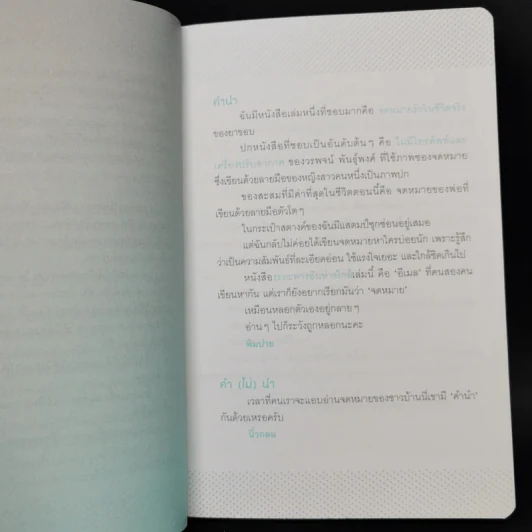 คำนำ
ฉันมีหนังสือเล่มหนึ่งที่ชอบมากคือ จดหมายรักในชีวิตจริง
ของยาขอบ
ปกหนังสือที่ชอบเป็นอันดับต้นๆ คือ ไม่มีโทรศัพท์และ
เครื่องปรับอากาศ ของวรพจน์ พันธุ์พงศ์ ที่ใช้ภาพซองจดหมาย
ซึ่งเขียนด้วยลายมือของหญิงสาวคนหนึ่งเป็นภาพปก
ของสะสมที่มีค่าที่สุดในชีวิตตอนนี้คือ จดหมายของพ่อที่
เขียนด้วยลายมือตัวโตๆ
ในกระเป๋าสตางค์ของฉันมีแสตมป์ซุกซ่อนอยู่เสมอ
แต่ฉันกลับไม่ค่อยได้เขียนจดหมายหาใครบ่อยนัก เพราะรู้สึก
ว่าเป็นความสัมพันธ์ที่ละเอียดอ่อน ใช้แรงใจเยอะ และใกล้ชิดเกินไป
หนังสือระยะทางอันห่างใกล้เล่มนี้ คือ 'อีเมล' ที่คนสองคน
เขียนหากัน แต่เราก็ยังอยากเรียกมันว่า 'จดหมาย'
เหมือนหลอกตัวเองอยู่กลายๆ
อ่านๆ ไปก็ระวังถูกหลอกนะคะ
พิมปาย
คำ (ไม่) นำ
เวลาที่คนเราจะแอบอ่านจดหมายของชาวบ้านนี่เขามี 'คำนำ'
กันด้วยเหรอครับ
นิ้วกลม